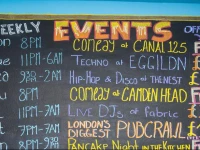 WEEKLY EVENTS
ON 8PM COMEDY at CANAL 125
11PM-6AM TECHNO at EGG LDN
9PM-2AM HIP-HOP & DISCO at THE NEST
8PM COMEDY at CAMDEN HEAD
11PM-7AM LIVE DJs at FABRIC
7PM- LONDON'S BIGGEST PUBCRAWL
PANCAKE NIGHT IN THE KITCHEN